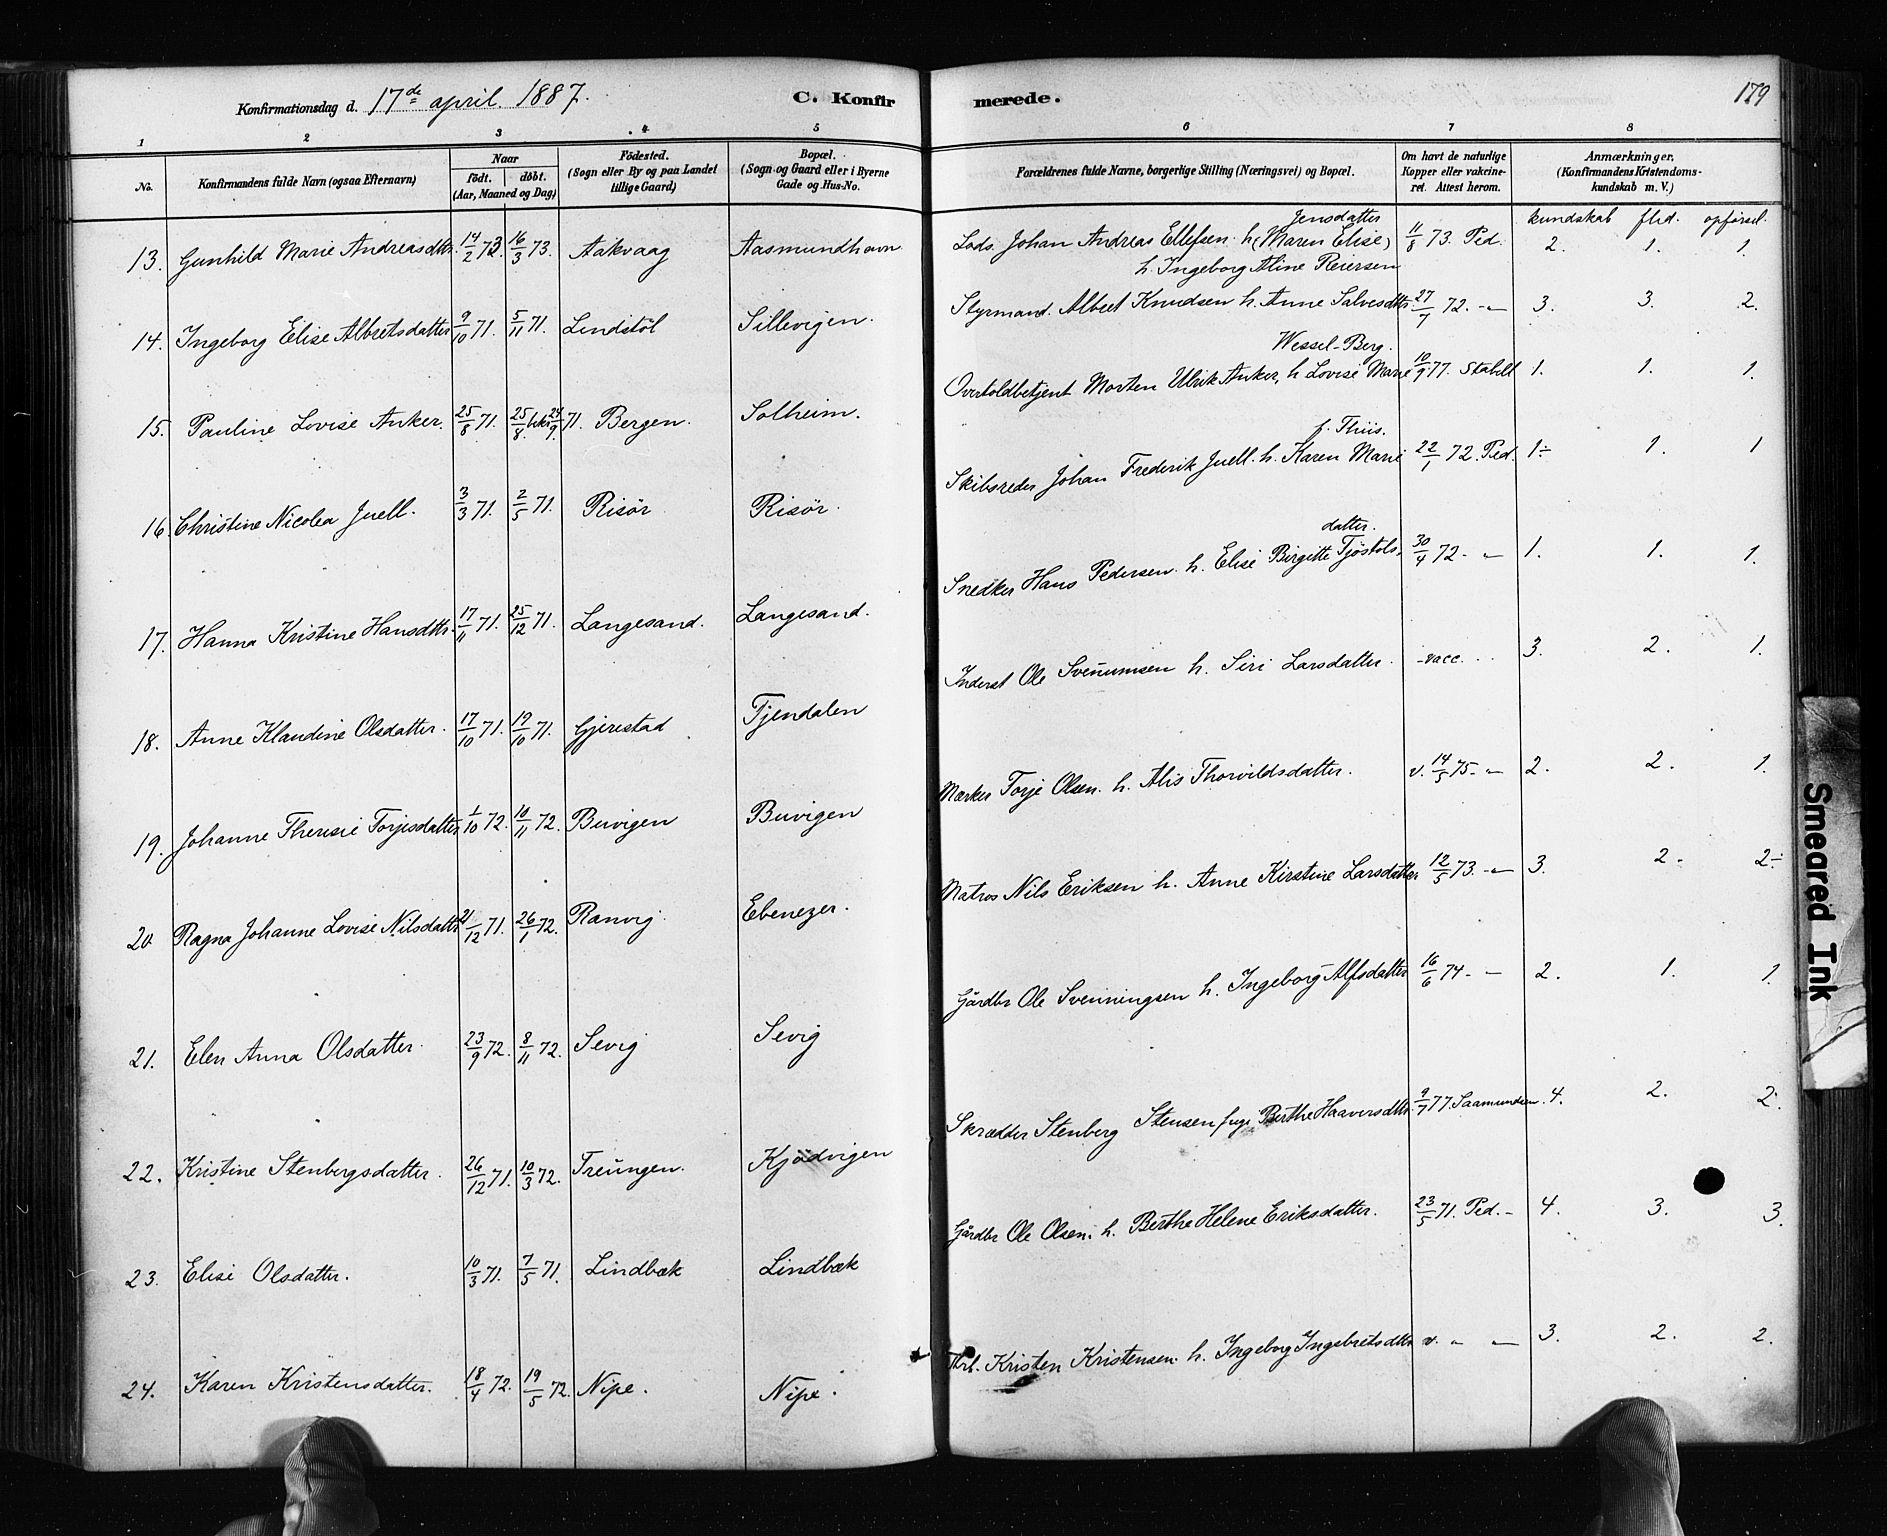 Konfirmationsdag d. 17de april. 1887. C. Konfirmerede. 179
1 2 3 4 5 6 7 8
No. Konfirmandens fulde Navn (ogsaa Efternavn) Naar Födt. döbt. (Aar, Maaned og Dag) Födested. (Sogn eller By og paa Landet tillige Gaard) Bopæl. (Sogn og Gaard eller i Byerne Gade og Hus-No. Forældrenes fulde Navne, borgerlige Stilling (Næringsvei) og Bopæl. Om havt de naturlige Kopper eller vakcineret. Attest herom. Anmærkninger. (Konfirmandens Kristendomskundskab m. V.)
kundskab flid. opførsel.
13. Gunhild Marie Andreasdttr. 14/2 73. 16/3 73. Aakvaag Aasmundhavn Lods. Johan Andreas Ellefsen h. (Maren Elise) Jensdatter h. Ingeborg Aline Reiersen 11/8 73. Ped. 2. 1. 1.
14. Ingeborg Elise Albretsdatter 9/10 71. 5/11 71. Lindstøl Sillevigen. Styrmand. Albret Knudsen h. Anne Salvesdttr 27/7 72. -"- 3. 3. 2.
15. Pauline Lovise Anker. 25/8 71. 25/8. bekr 24/9 71. Bergen. Solheim. Overtoldbetjent Morten Ulrik Anker, h Lovise Marie Wessel-Berg. 10/9 77. Stabell 1. 1. 1.
16. Christine Nicolea Juell. 3/3 71. 2/5 71. Risör Risör. Skibsreder Johan Frederik Juell. h. Karen Marie f. Thiis. 22/1 72. Ped. 1÷ 1. 1
17. Hanna Kristine Hansdttr. 17/11 71. 25/12 71. Langesand. Langesand. Snedker Hans Pedersen. h. Elise Birgitte Tjöstolsdatter. 30/4 72. - " 1. 1. 1.
18. Anne Klaudine Olsdatter. 17/10 71. 19/10 71. Gjerestad Tjendalen Inderst Ole Svenumsen h. Siri Larsdatter. -vacc. . . 3. 2. 1.
19. Johanne Theresie Torjesdatter 1/10 72. 10/11 72. Buvigen Buvigen Mærker Torje Olsen. h. Alis Thorvildsdatter. v. 14/5 75. -"- 2. 2. 1.
20 Ragna Johanne Lovise Nilsdattr 21/12 71. 26/1 72. Ranvig. Ebenezer. Matros Nils Eriksen h. Anne Kirstine Larsdatter 12/5 73. -"- 3. 2- 2÷
21. Elen Anna Olsdatter. 23/9 72. 8/11 72. Sevig Sevig Gårdbr Ole Svenningsen h. Ingeborg Alfsdatter 16/6 74- - 2. 1. 1.
22. Kristine Stenbergsdatter. 26/12 71. 10/3 72. Treungen. Kjödvigen Skrædder Stenberg Stensen fugi Berthe Haaversdttr. 9/7 77. Saamundsen. 4. 2. 2.
23. Elise Olsdatter. 10/3 71. 7/5 71. Lindbæk Lindbæk Gårdbr Ole Olsen. h. Berthe Helene Eriksdatter. 23/5 71. Ped. - 4. 3. 3.
24. Karen Kristensdatter. 18/4 72. 19/5 72. Nipe. Nipe. Kristen Kristensen h. Ingeborg Ingebretsdttr v. " - 3. 2. 2.
Smeared Ink